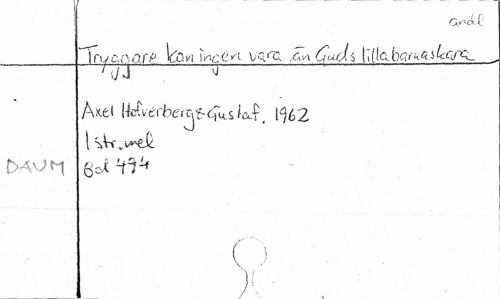 andl
Tryggare kan ingen vara än Guds lilla barnaskara
Axel Hofverberg & Gustaf. 1962
1 str. mel
DAUM Bd 494